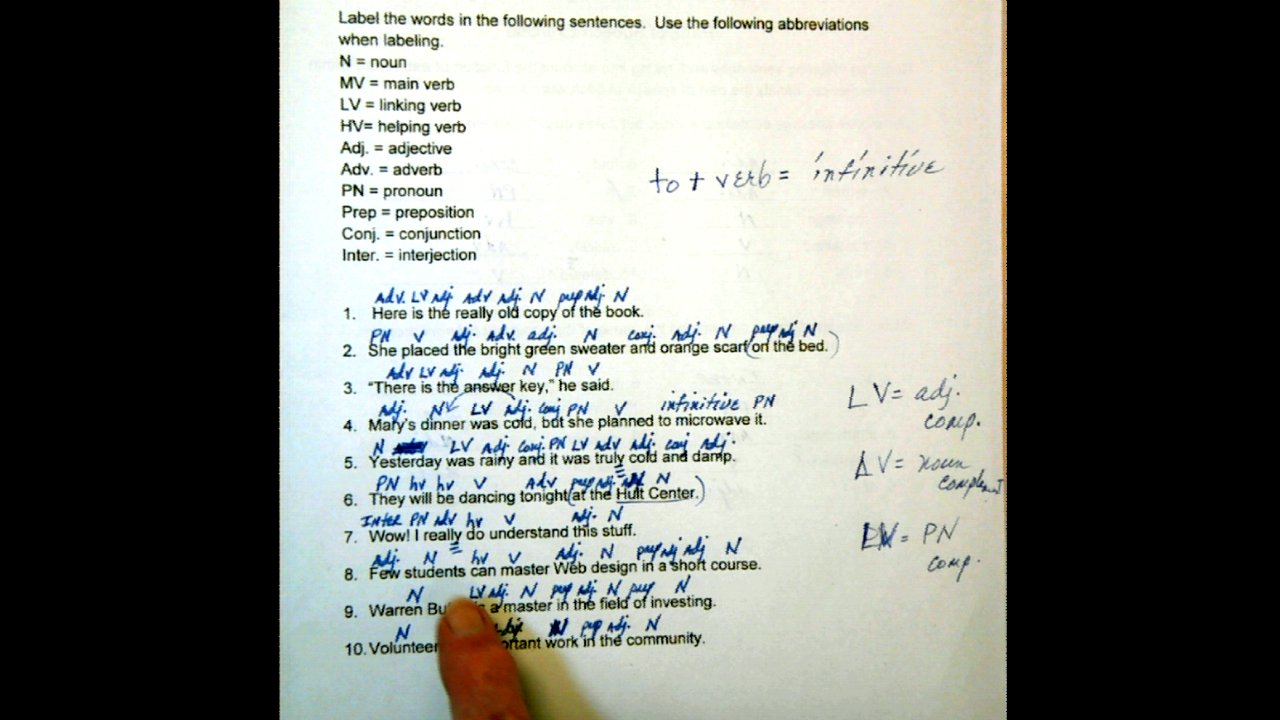 Label the words in the following sentences. Use the following abbreviations
when labeling.
N = noun
MV = main verb
LV = linking verb
HV= helping verb
Adj. = adjective
Adv. = adverb
PN = pronoun
to + verb = infinitive
Prep = preposition
Conj. = conjunction
Inter. = interjection
Adv. LV Adj. Adv Adj. N prep Adj. N
1. Here is the really old copy of the book.
PN V Adj. Adv. adj. N conj. Adj. N prep Adj N
2. She placed the bright green sweater and orange scarf (on the bed.)
Adv LV Adj. Adj. N PN V
3. "There is the answer key," he said.
Adj. N LV Adj. conj PN V infinitive PN
LV = adj. comp.
4. Mary's dinner was cold, but she planned to microwave it.
N LV Adj conj. PN LV Adv Adj. conj Adj.
5. Yesterday was rainy and it was truly cold and damp.
noun
PN hv hv V Adv prep Adj. N
6. They will be dancing tonight (at the Hult Center.)
Inter PN Adv hv V Adj. N
7. Wow! I really do understand this stuff.
= PN comp.
Adj. N hv V Adj. N prep Adj Adj N
8. Few students can master Web design in a short course.
N LV Adj. N prep Adj. N prep N
9. Warren a master in the field of investing.
N prep Adj. N
10. work in the community.